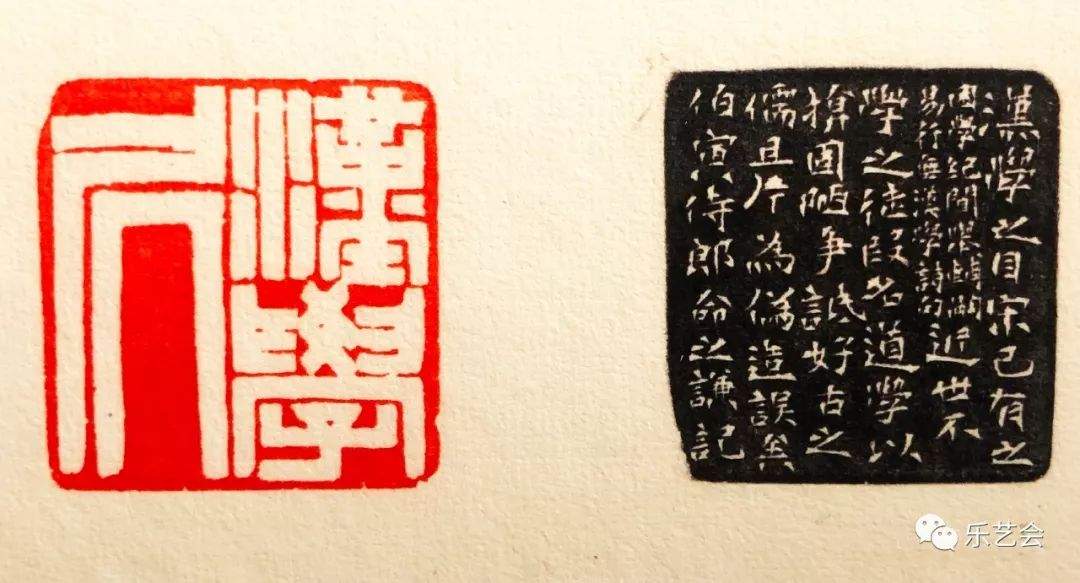 漢學
凥
漢學之目宋已有之
困學紀聞
易行無漢學詩句
近世不
學之徒叚名道學以
揜固陋爭詆好古之
儒且斥為僞造誤矣
伯寅侍郎命之謙記
乐艺会